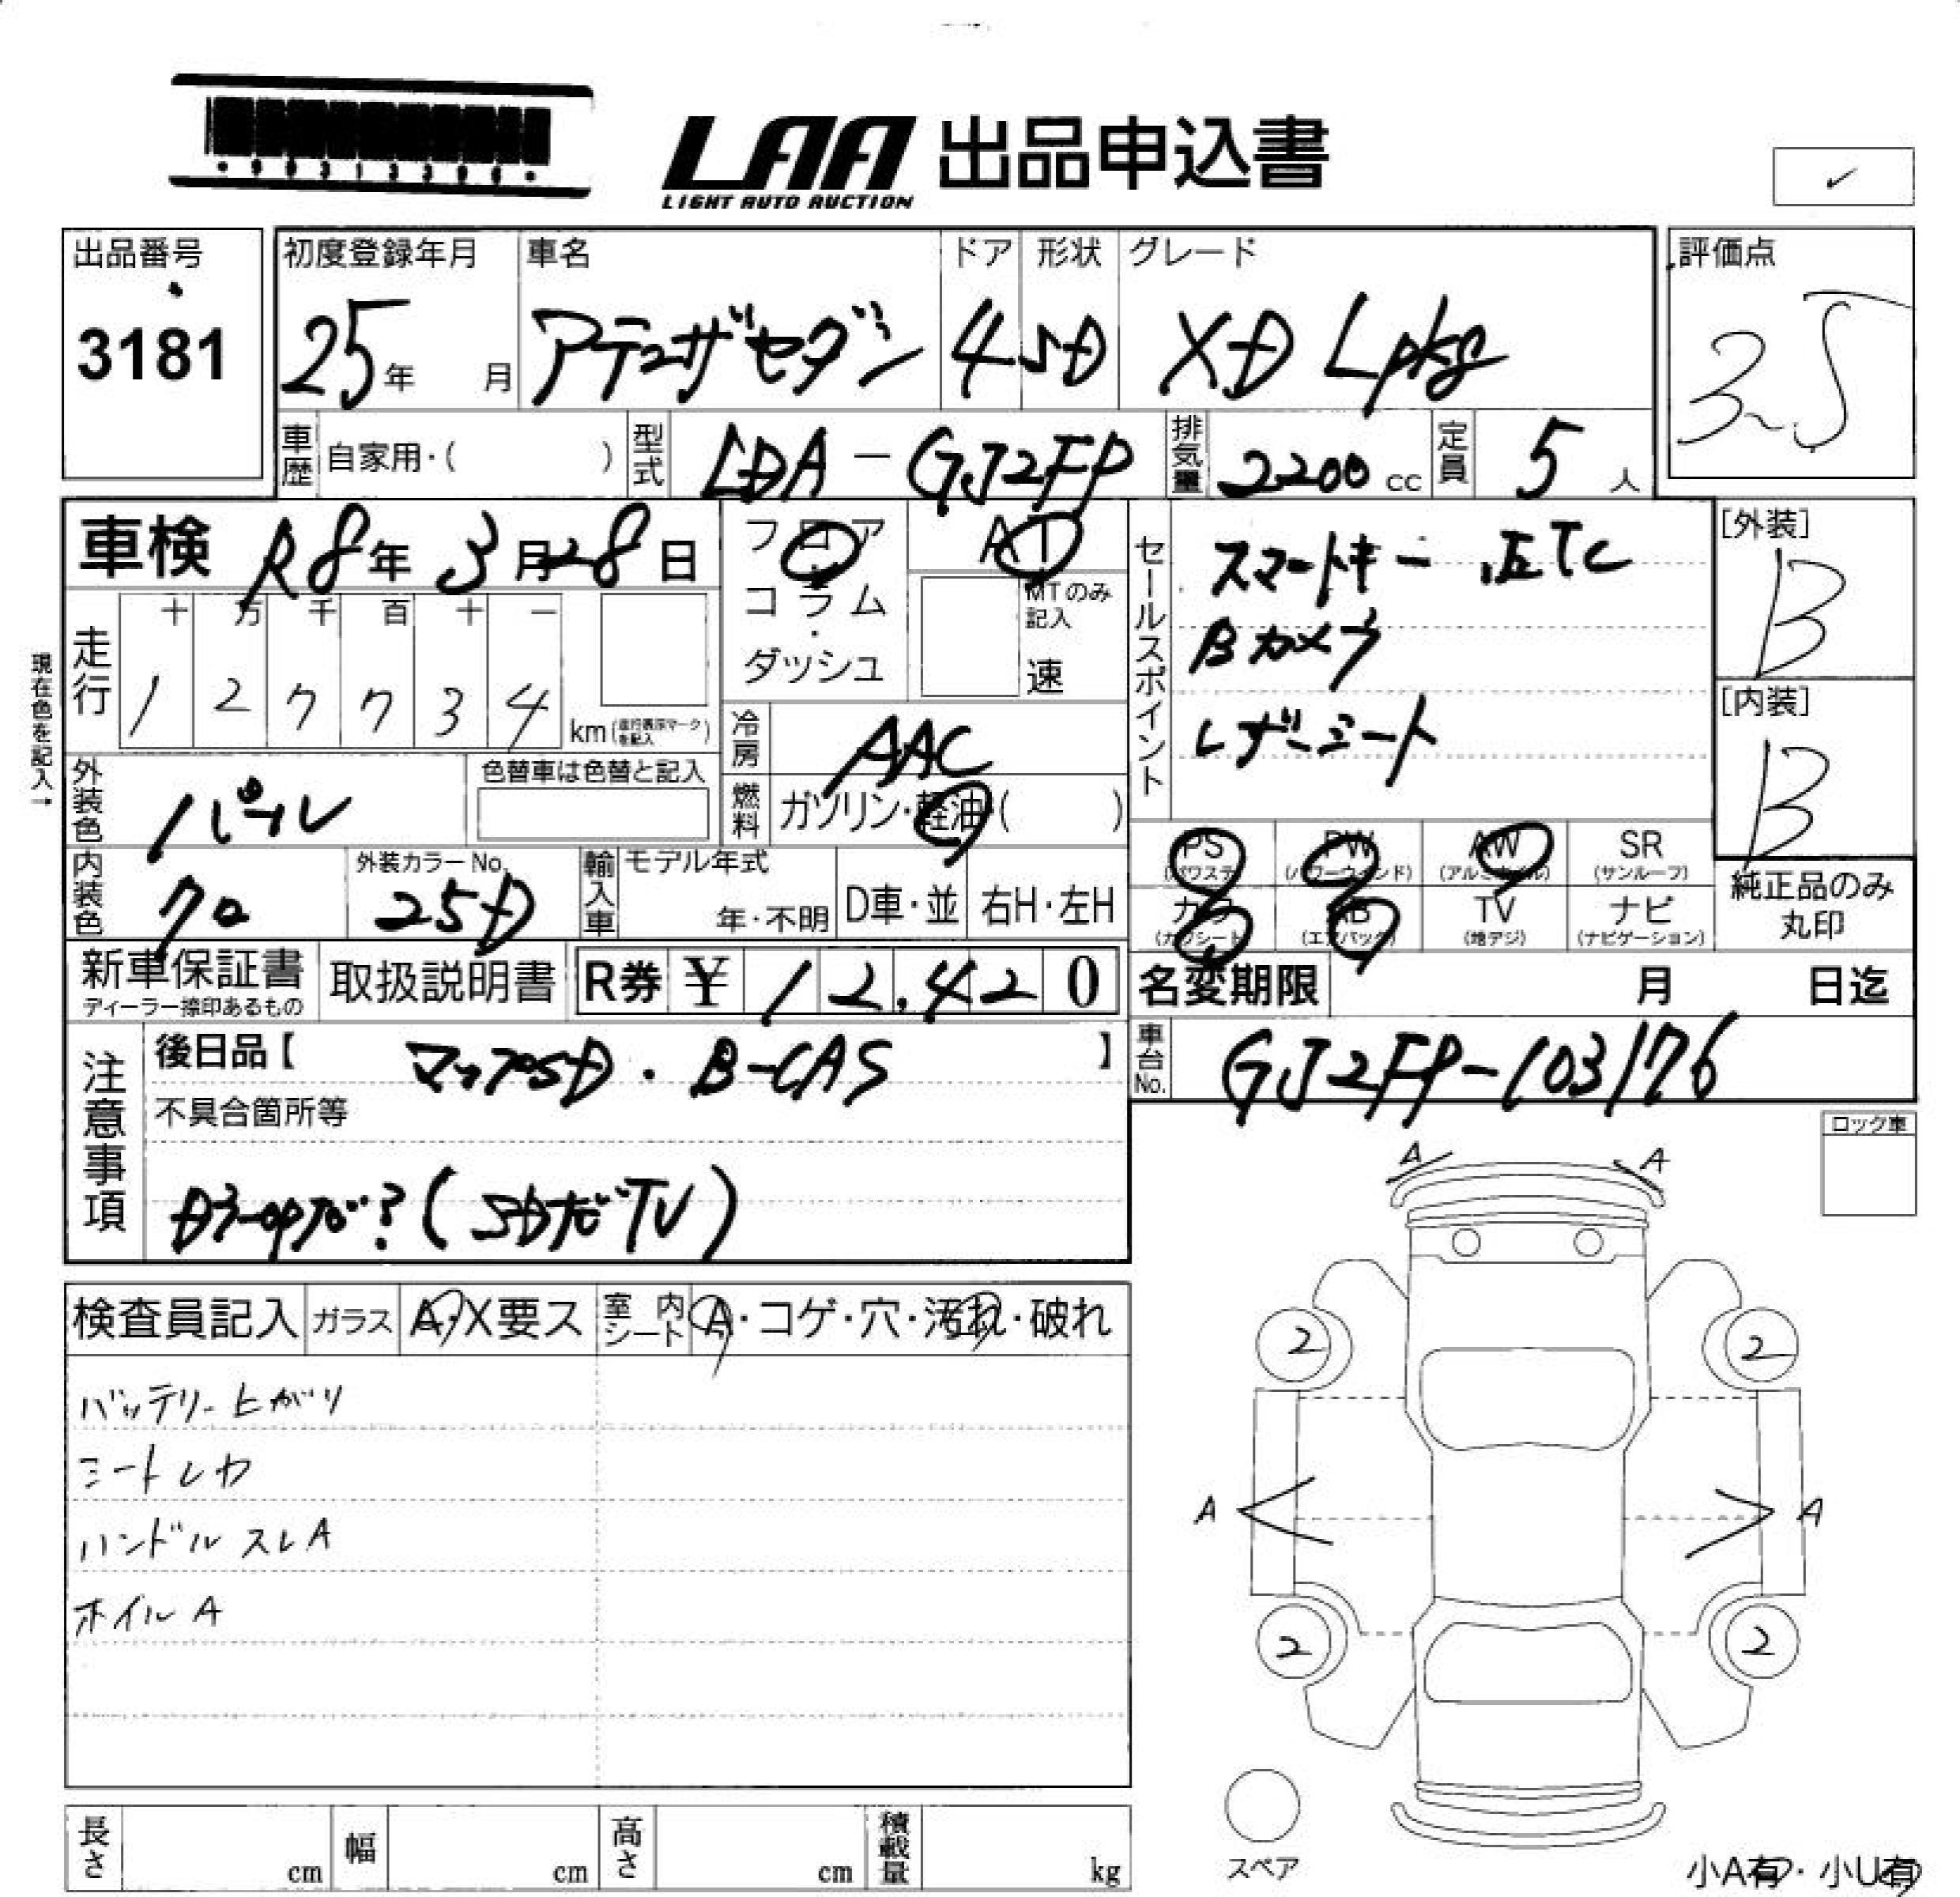 LAA 出品申込書
LIGHT AUTO AUCTION
出品番号
3181
初度登録年月
25年 月
車名
アテンザセダン
ドア
4
形状
SD
グレード
XD Lpkg
評価点
3.5
車歴 自家用・( )
型式 LDA-GJ2FP
排気量 2200cc
定員 5人
車検 R8年3月28日
フロア
コラム
・
ダッシュ
AT
MTのみ記入
速
セールスポイント
スマートキー .ETC
Bカメラ
レザーシート
[外装]
B
[内装]
B
現在色を記入→
走行
十 万 千 百 十 一
1 2 7 7 3 4 km(走行表示マークを記入)
冷房 AAC
燃料 ガソリン・軽油・( )
外装色 パール
色替車は色替と記入
内装色 クロ
外装カラーNo. 25D
輸入車
モデル年式
年・不明
D車・並
右H・左H
PS (パワステ)
PW (パワーウインド)
AW (アルミホイル)
SR (サンルーフ)
カワ (カワシート)
AB (エアバッグ)
TV (地デジ)
ナビ (ナビゲーション)
純正品のみ
丸印
新車保証書
ディーラー捺印あるもの
取扱説明書
R券 ¥ 12,420
名変期限 月 日迄
注意事項
後日品【 マップSD・B-CAS 】
車台No. GJ2FP-103176
不具合箇所等
(SDナビTV)
ロック車
A A
検査員記入
ガラス A・X要ス
室内シート A・コゲ・穴・汚れ・破れ
バッテリー上がり
シートレカ
ハンドルスレA
ホイルA
2 2
A A
2 2
スペア
長さ cm
幅 cm
高さ cm
積載量 kg
小A有・小U有